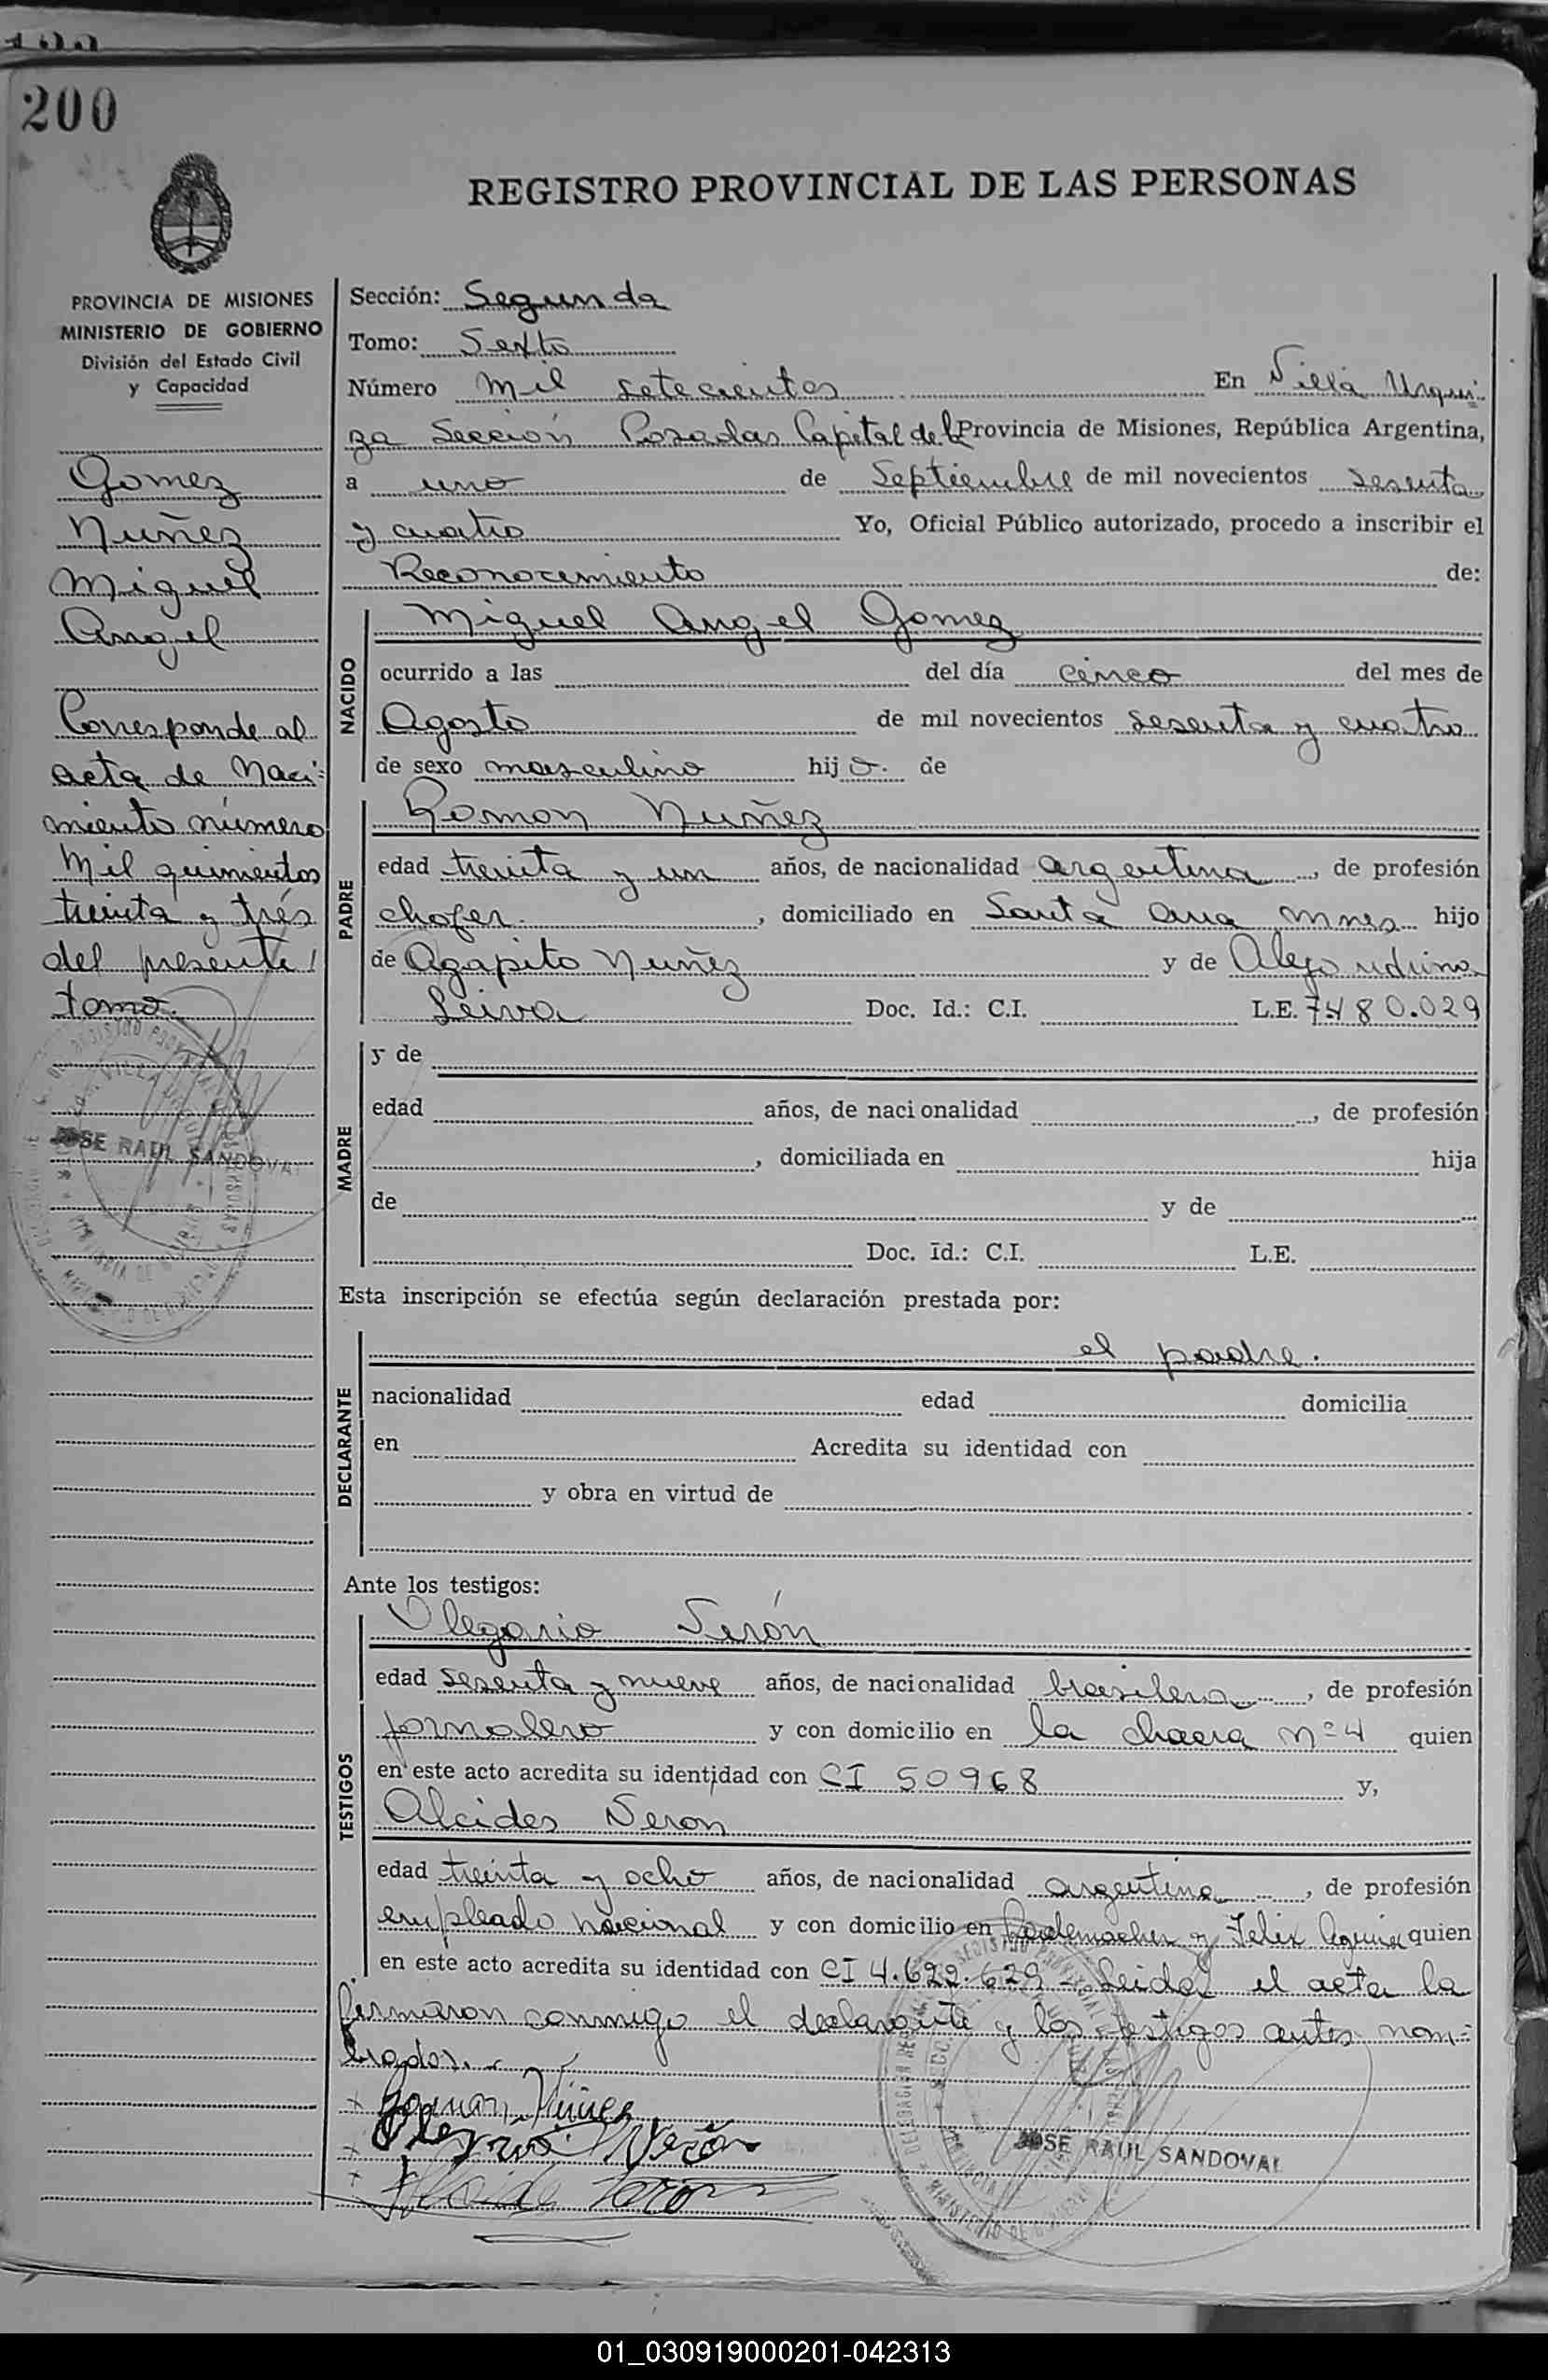 200
REGISTRO PROVINCIAL DE LAS PERSONAS
PROVINCIA DE MISIONES
MINISTERIO DE GOBIERNO
División del Estado Civil
y Capacidad
Gomez
Nuñez
Miguel
Angel
Corresponde al
acta de Naci=
miento número
Mil quinientos
treinta y trés
del presente
tomo.
JOSE RAUL SANDOVAL
Sección: Segunda
Tomo: Sexto
Número Mil setecientos En Villa Urqui=
za Sección Posadas Capital de la Provincia de Misiones, República Argentina,
a uno de Septiembre de mil novecientos sesenta
y cuatro Yo, Oficial Público autorizado, procedo a inscribir el
Reconocimiento de:
NACIDO
Miguel Angel Gomez
ocurrido a las del día cinco del mes de
Agosto de mil novecientos sesenta y cuatro
de sexo masculino hijo. de
PADRE
Romon Nuñez
edad treinta y un años, de nacionalidad argentina, de profesión
chofer. , domiciliado en Santa Ana Mnes hijo
de Agapito Nuñez y de Alejandrina
Leiva Doc. Id.: C.I. L.E. 7480.029
MADRE
y de
edad años, de nacionalidad , de profesión
, domiciliada en hija
de y de
Doc. Id.: C.I. L.E.
Esta inscripción se efectúa según declaración prestada por:
DECLARANTE
el padre.
nacionalidad edad domicilia
en Acredita su identidad con
y obra en virtud de
Ante los testigos:
TESTIGOS
Olegario Verón
edad sesenta y nueve años, de nacionalidad brasilera, de profesión
jornalero y con domicilio en la chacra nº 4 quien
en este acto acredita su identidad con CI 50968 y,
Alcides Veron
edad treinta y ocho años, de nacionalidad argentina, de profesión
empleado nacional y con domicilio en Rademacher y Felix Aguirre quien
en este acto acredita su identidad con CI 4.622.629 - Leida el acta la
firmaron conmigo el declarante y los testigos antes nom=
brados. -
Roman Nuñez
Olegario Verón
Alcides Veron
JOSE RAUL SANDOVAL
01_030919000201-042313